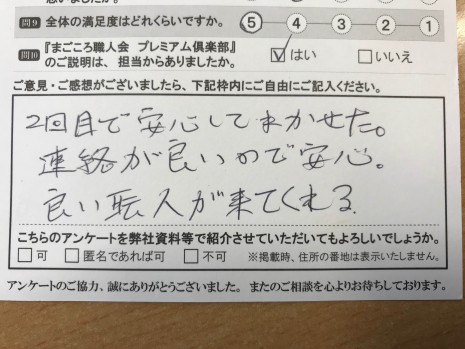 問9 全体の満足度はどれくらいですか。 5 4 3 2 1
問10 『まごころ職人会 プレミアム倶楽部』 はい いいえ
のご説明は、担当からありましたか。
ご意見・ご感想がございましたら、下記枠内にご自由にご記入ください。
2回目で安心してまかせた。
連絡が良いので安心。
良い職人が来てくれる
こちらのアンケートを弊社資料等で紹介させていただいてもよろしいでしょうか。
可 匿名であれば可 不可 ※掲載時、住所の番地は表示いたしません。
アンケートのご協力、誠にありがとうございました。またのご相談を心よりお待ちしております。